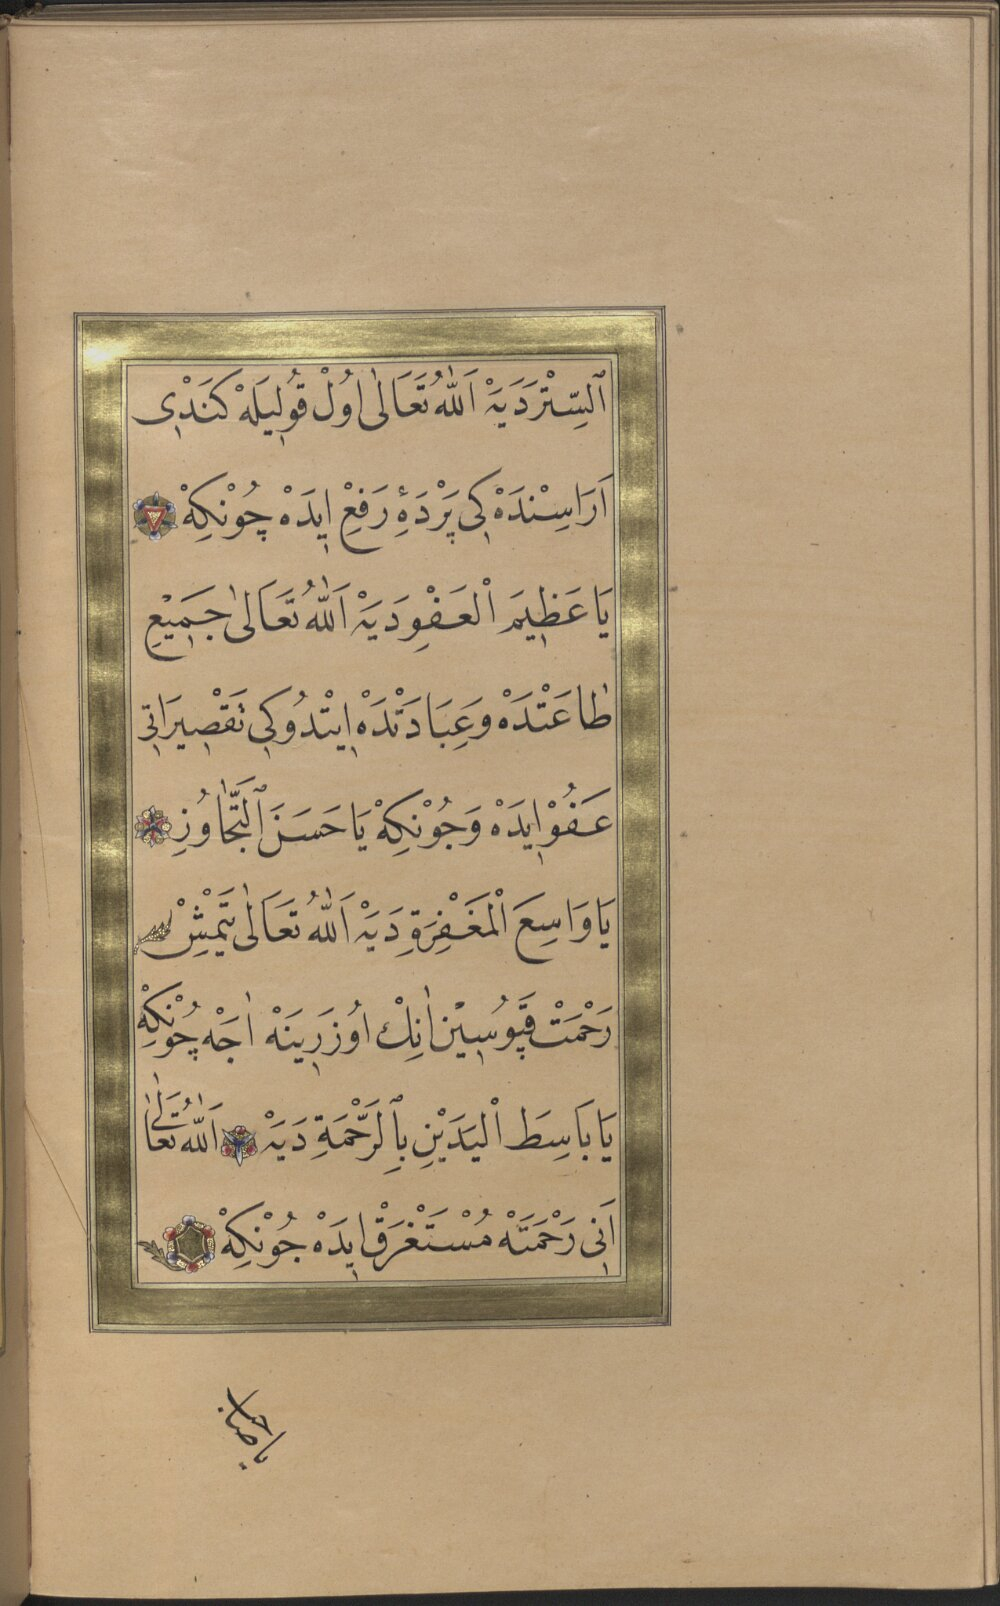 اَلسِّتْرَ دَيَهْ اَللّٰهُ تَعَالٰى اُولْ قُولِيلَهْ كَنْدِى
اَرَاسِنْدَهْ كِى پَرْدَهِٔ رَفِعْ اِيدَهْ چُونْكِهْ
يَا عَظِيمَ الْعَفْوِ دَيَهْ اَللّٰهُ تَعَالٰى جَمِيْعِ
طَاعَتْدَهْ وَعِبَادَتْدَهْ اِيتْدُوكِى تَقْصِيرَاتِى
عَفُوْ اِيدَهْ وَچُونْكِهْ يَا حَسَنَ اَلتَّجَاوُزِ
يَا وَاسِعَ الْمَغْفِرَةِ دَيَهْ اَللّٰهُ تَعَالٰى يَتْمِشْ
رَحْمَتْ قَپُوسِيْن اَنِكْ اُوزَرِينَهْ اَچَهْ چُونْكِهْ
يَا بَاسِطَ الْيَدَيْنِ بِالرَّحْمَةِ دَيَهْ اَللّٰهُ تَعَالٰى
اَنِى رَحْمَتَهْ مُسْتَغْرَقْ اِيدَهْ چُونْكِهْ
يا صاحب